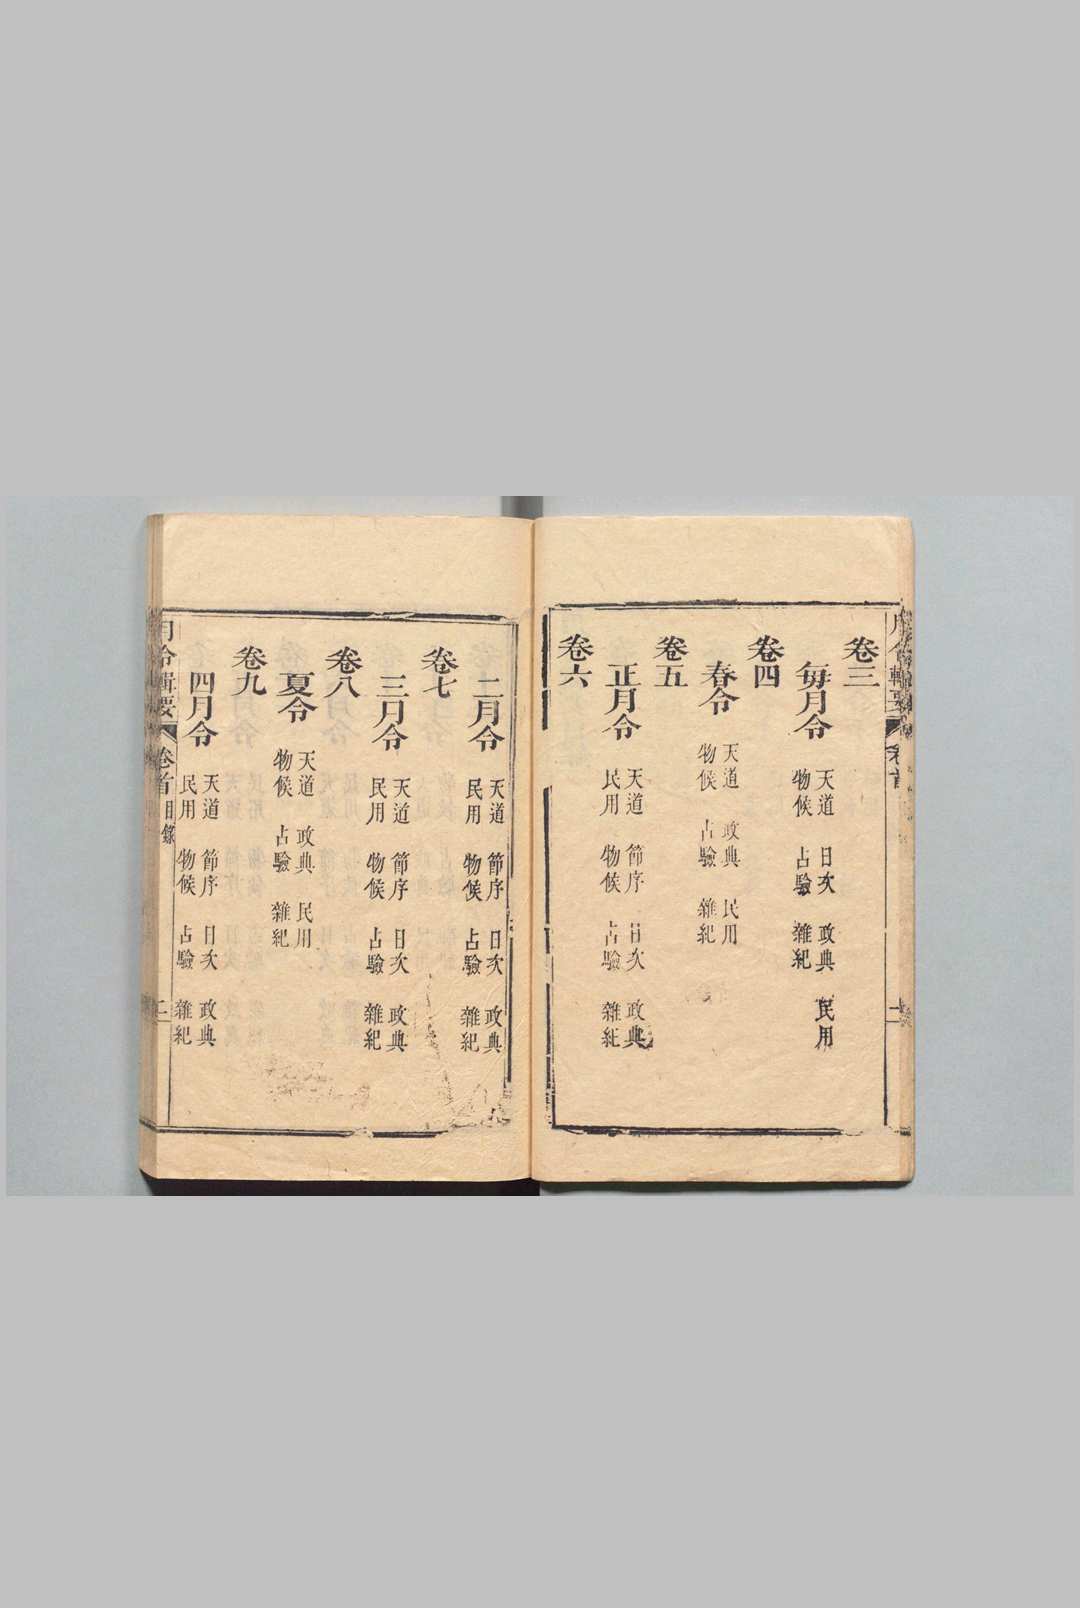 卷三
每月令
天道 日次 政典 民用
物候 占驗 雜紀
卷四
春令
天道 政典 民用
物候 占驗 雜紀
卷五
正月令
天道 節序 日次 政典
民用 物候 占驗 雜紀
卷六
二月令
天道 節序 日次 政典
民用 物候 占驗 雜紀
卷七
三月令
天道 節序 日次 政典
民用 物候 占驗 雜紀
卷八
夏令
天道 政典 民用
物候 占驗 雜紀
卷九
四月令
天道 節序 日次 政典
民用 物候 占驗 雜紀
月令輯要 卷首 目錄